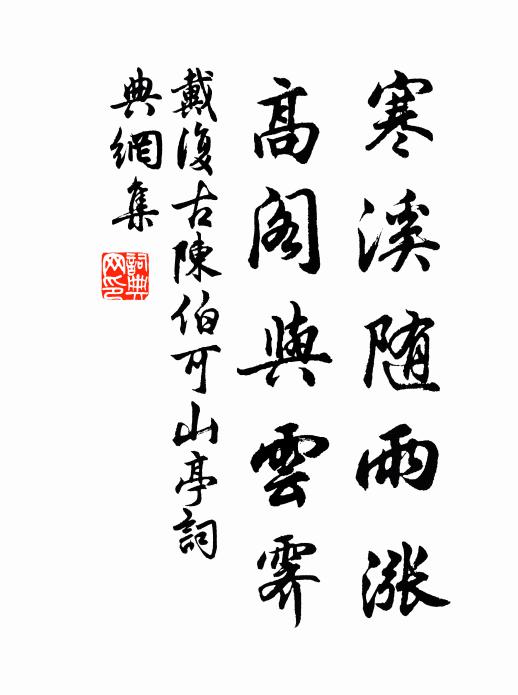 寒溪随雨漲
高閣與雲齊
戴復古陳伯可山亭詞
典網集
詞典網印